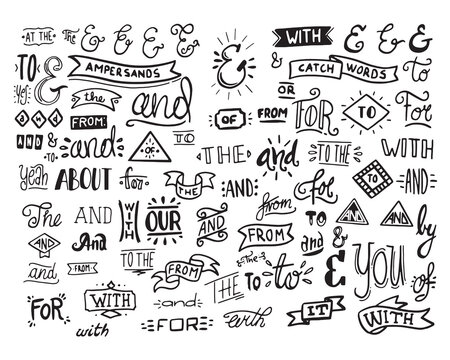 AT THE The & & & & &
WITH & & &
TO & AMPERSANDS &
& CATCH WORDS to
Yes & the and
OR
OF FROM FOR TO For
FROM:
AND & and OF TO
THE and TO THE WITH
TO
yeah ABOUT for THE AND for TO AND
The AND WITH OUR AND from TO AND AND by
AND And FROM and & & YOU of
and FROM TO THE FROM THE TO the to
FOR WITH and IT WITH
with FOR with